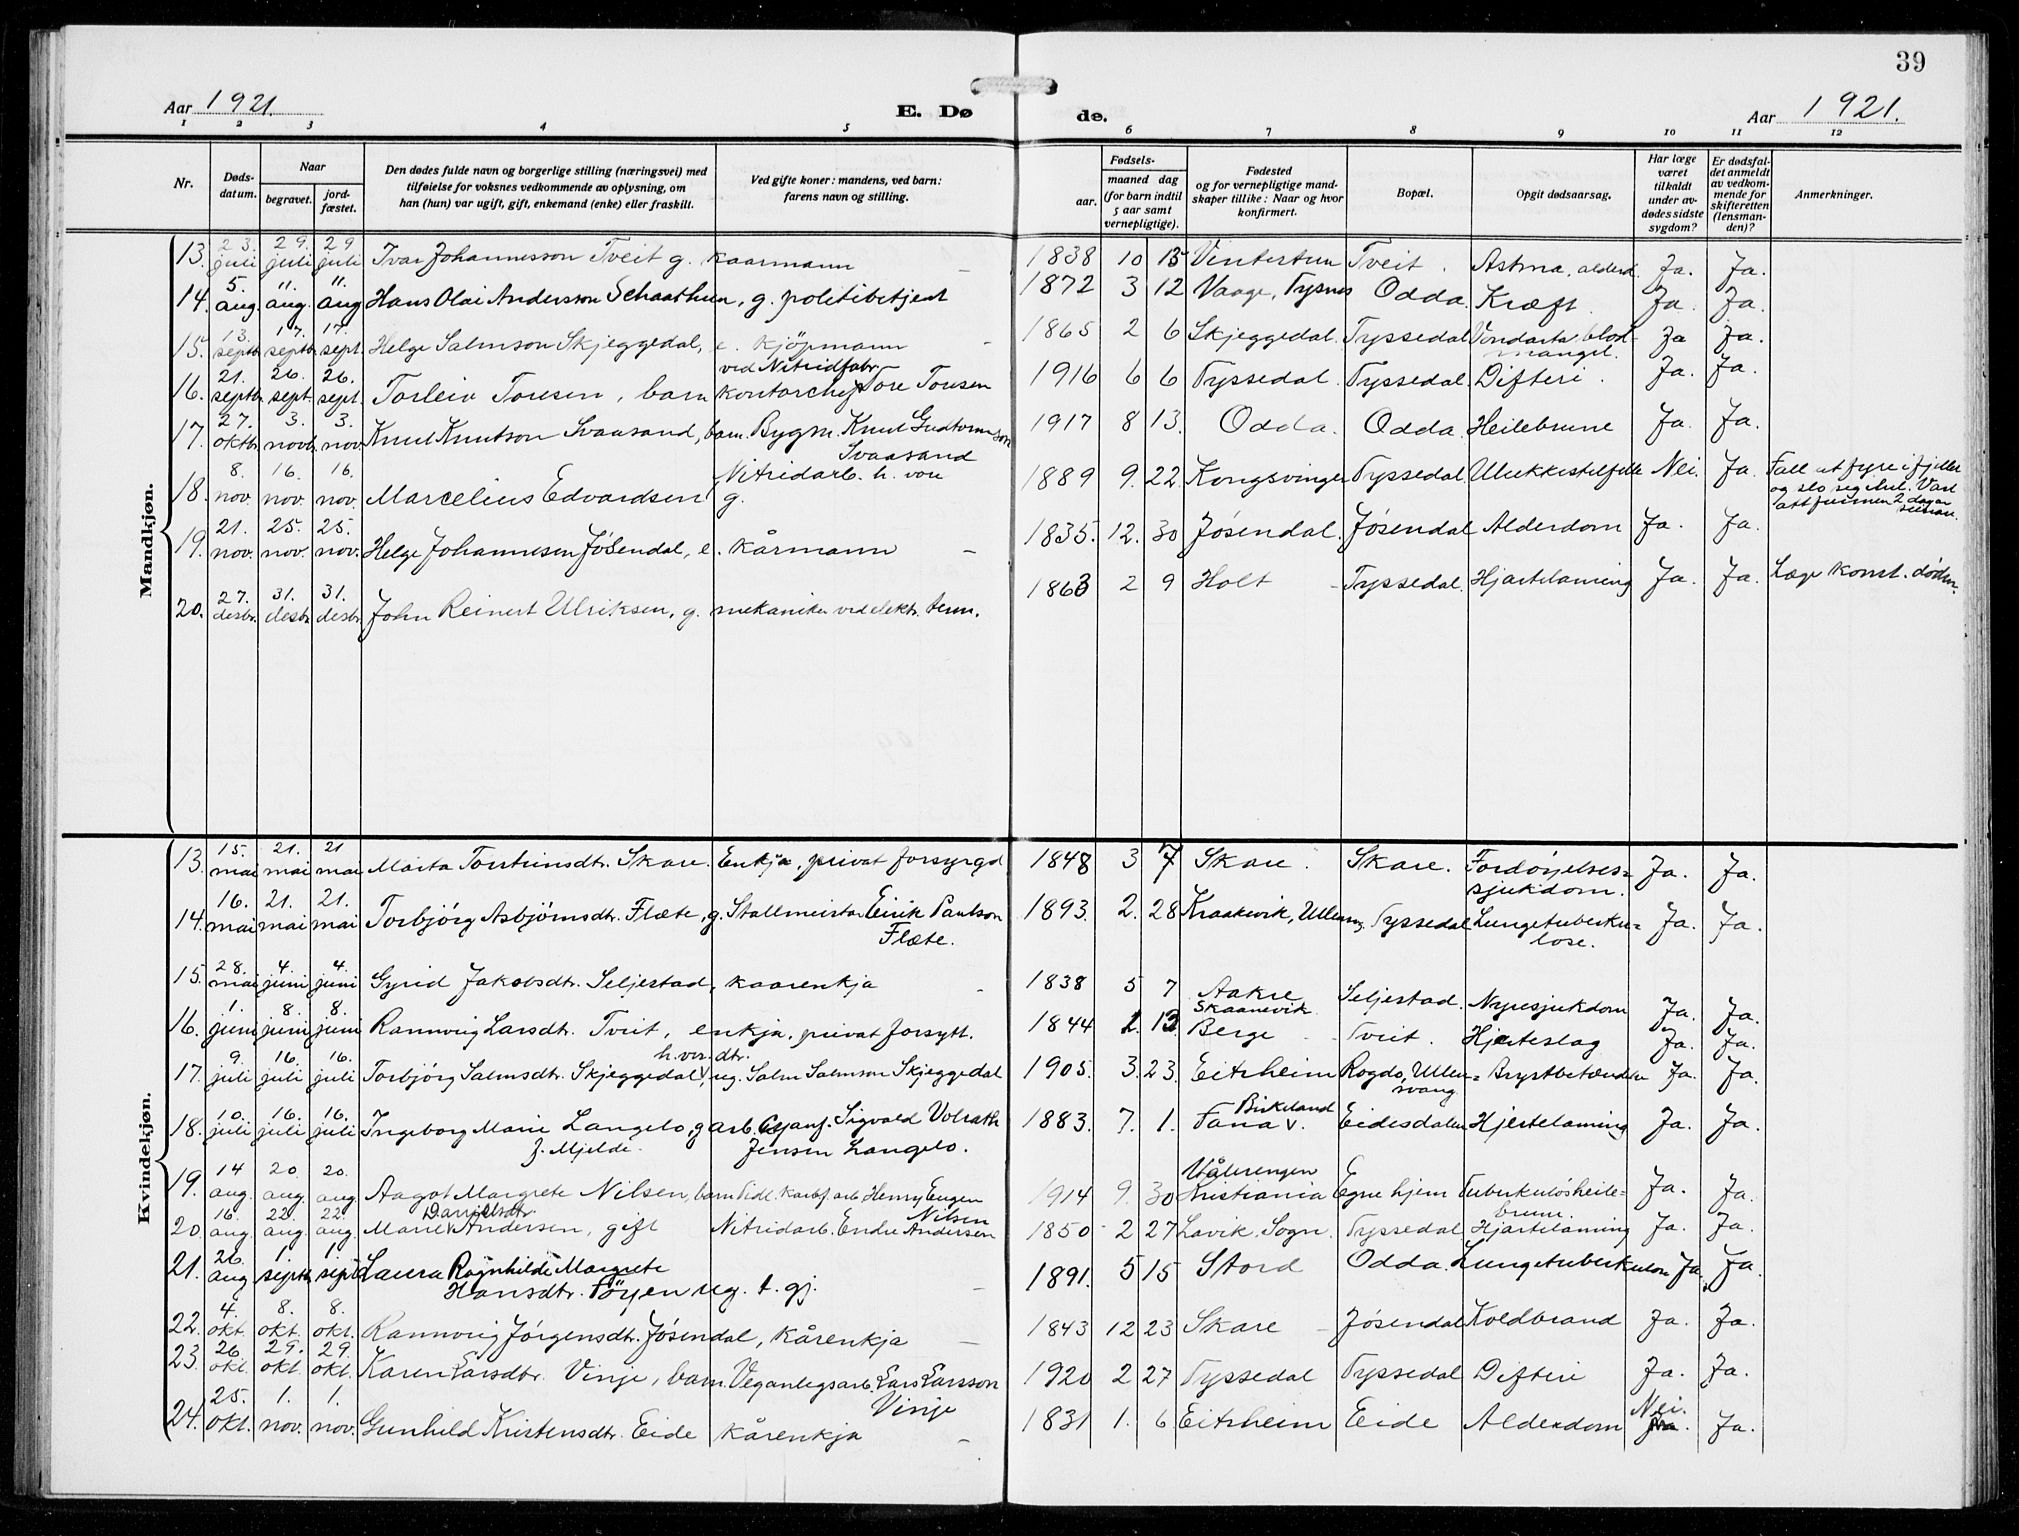 39
Aar 1921. E. Dø de. Aar 1921.
1 2 3 4 5 6 7 8 9 10 11 12
Nr. Døds-datum. Naar begravet. jord-fæstet. Den dødes fulde navn og borgerlige stilling (næringsvei) med tilføielse for voksnes vedkommende av oplysning, om han (hun) var ugift, gift, enkemand (enke) eller fraskilt. Ved gifte koner: mandens, ved barn: farens navn og stilling. Fødsels- aar. maaned dag (for barn indtil 5 aar samt vernepligtige). Fødested og for vernepligtige mand-skaper tillike: Naar og hvor konfirmert. Bopæl. Opgit dødsaarsag. Har læge været tilkaldt under av-dødes sidste sygdom? Er dødsfal-det anmeldt av vedkom-mende for skifteretten (lensman-den)? Anmerkninger.
Mandkjøn.
13. 23. juli 29. juli 29 juli Ivar Johannesson Tveit g. kaarmann 1838 10 15 Vintertun Tveit. Astma, alderd. Ja. Ja.
14. 5. aug. 11. aug. 11. aug Hans Olai Andersson Schaathun, g. politibetjent 1872 3 12 Vaage, Tysnes Odda. Kræft. Ja. Ja.
15. 13. septbr 17. septbr 17. sept. Helge Salmson Skjeggedal, e. kjöpmann 1865 2 6 Skjeggedal. Tyssedal Vondarta blod-mangel. Ja Ja.
16. 21. septbr 26. sept. 26. sept. Torleiv Toresen, barn ved Nitridfabr. kontorchef Tore Toresen 1916 6 6 Tyssedal. Tyssedal. Difteri. Ja. Ja.
17. 27. oktbr 3. novb 3. nov. Knut Knutson Svaasand, barn. Bygm. Knut Gudtormson Svaasand 1917 8 13. Odda. Odda. Heilebrune Ja. Ja.
18. 8. nov. 16. nov. 16. nov. Marcelius Edvardsen g. Nitridarb. h. von 1889 9. 22. Kongsvinger Tyssedal Ulukkestilfelle Nei. Ja. Fall ut fyre i fjellet og slo seg ihel. Vart attfunnen 2 dagar seinare.
19. 21. nov. 25. nov. 25. nov. Helge Johannesen Jøsendal, e. kårmann 1835. 12. 30 Jøsendal. Jøsendal Alderdom Ja. Ja.
20. 27. desbr. 31. desbr 31. desbr. John Reinert Ulriksen, g. mekaniker ved elektr. 1863 2 9 Holt Tyssedal. Hjartelaming Ja. Ja. Læge konst. døden.
Kvindekjøn.
13. 15. mai 21. mai 21 mai Marta Torsteinsdtr. Skare. Enkja, privat forsyrgd 1848 3 7 Skare. Skare. Fordøyelses-sjukdom. Ja. Ja.
14. 16. mai 21. mai 21. mai Torbjörg Asbjörnsdtr. Flæte, g. Stallmeistar Eirik Paulson Flæte. 1893. 2. 28 Kraakevik, Ullensv. Tyssedal Lungetuberku-lose. Ja. Ja.
15. 28. mai 4. juni 4. juni Gyrid Jakobsdtr. Seljestad, kaarenkja 1838 5 7 Aakre Skaanevik Seljestad. Nyresjukdom Ja. Ja.
16. 1. juni 8. juni 8. juni Rannveig Larsdtr. Tveit, enkja, privat forsytt. 1844 2. 13. Berge Tveit. Hjerteslag Ja. Ja.
17. 9. juli 16. juli 16. juli Torbjörg Salmsdtr. Skjeggedal, ug. h.ver.dtr. Salm Salmson Skjeggedal 1905. 3. 23. Eitrheim Rogdo, Ullen-svang. Brystbetændelse Ja. Ja.
18. 10. juli 16. juli 16. juli Ingeborg Marie Langelo, g f. Mjelde. arb. Cyanf. Sigvald Volrath Jensen Langelo. 1883. 7. 1. Birkeland Fana. Eidesdalen Hjertelaming Ja. Ja.
19. 14 aug. 20 aug. 20. aug. Aagot Margrete Nilsen, barn fidl. karbf. arb Henry Eugen Nilsen 1914 9. 30 Vålerengen Kristiania Egne hjem Tuberkuløs heile-brune. Ja. Ja.
20. 16. aug. 22. aug. 22. aug. Marie Danielsdtr. Andersen, gift Nitridarb. Endre Andersen 1850 2 27 Lavik, Sogn. Tyssedal Hjartelaming Ja. Ja.
21. 26. aug 1. septb 1. septb Laura Ragnhilde Margrete Hansdtr. Töyen ug. t. gj. 1891. 5 15 Stord Odda. Lungetuberkulose Ja. Ja.
22. 4. okt. 8. okt. 8. okt. Rannveig Jörgensdtr. Jösendal, kårenkja 1843 12 23 Skare Jøsendal Koldbrand Ja. Ja.
23. 26 okt. 29. okt. 29. okt. Karen Larsdtr. Vinje, barn. Veganlegsarb. Lars Larsson Vinje 1920 2 27 Tyssedal Tyssedal Difteri Ja. Ja.
24. 25. okt. 1. nov. 1. nov. Gunhild Kristensdtr. Eide kårenkja 1831 1. 6 Eitrheim Eide Alderdom Nei. Ja.